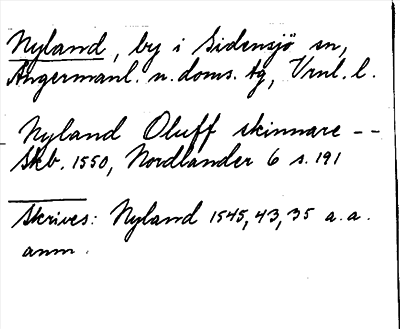 Nyland, by i Sidensjö sn,
Ångermanl. n. doms. tg, Vrnl. l.
Nyland Oluff skinnare --
Skb. 1550, Nordlander 6 s. 191
Skrives: Nyland 1545, 43, 35 a. a.
anm.